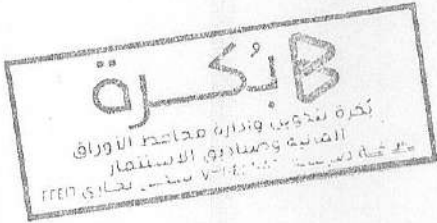 بُكرة
بُكرة لتكوين وإدارة محافظ الأوراق
المالية وصناديق الاستثمار
سجل تجاري